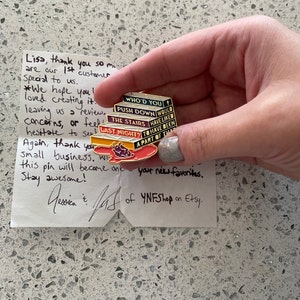 Lisa, thank you so m
are our 1st custome
special to us.
*We hope you
loved creating i
leave us a review
concerns, or fee
hesitate to se
Again, thank you
small business, w
this pin will become one your new favorites.
Stay awesome!
Jessica & of YNFShop on Etsy
WHO'D YOU
PUSH DOWN
THE STAIRS
LAST NIGHT?
TO HAVE BEEN
A PART OF